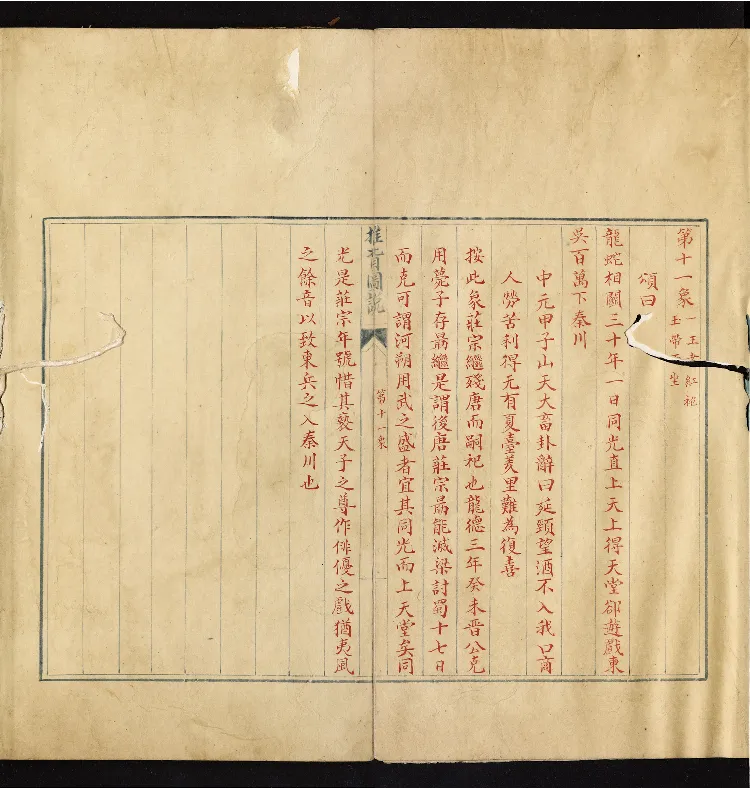 第十一象 一王者紅袍
玉帶正坐
頌曰
龍蛇相鬬三十年一日同光直上天上得天堂卻遊戲東
吳百萬下秦川
中元甲子山天大畜卦辭曰延頸望酒不入我口商
人勞苦利得无有夏臺羑里難為復喜
按此象莊宗繼殘唐而嗣祀也龍德三年癸未晉公克
用薨子存勗繼是謂後唐莊宗勗能滅梁討蜀十七日
而克可謂河朔用武之盛者宜其同光而上天堂矣同
推背圖說
第十一象
光是莊宗年號惜其褻天子之尊作俳優之戲猶夷風
之餘音以致東兵之入秦川也